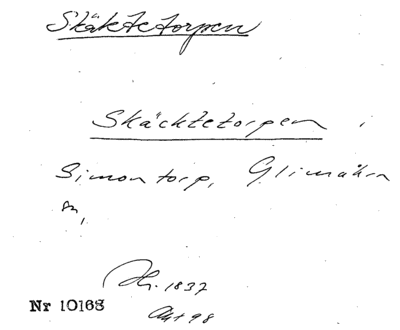 Skäktetorpen
Skäcktetorpen
Simontorp, Glimåkra
sn,
1837
Nr 10168
Akt 98